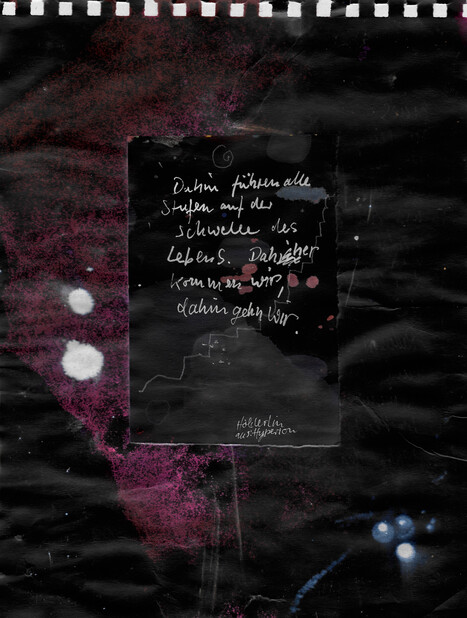 Dahin führen alle
Stufen auf der
Schwelle des
Lebens. Daher
kommen wir,
dahin gehn wir
Hölderlin
aus: Hyperion